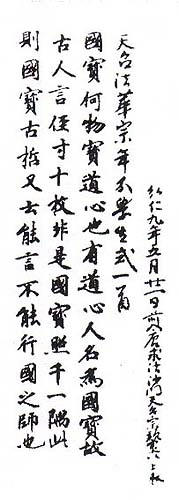 弘仁九年五月廿一日前入唐求法沙門
天台法華宗年分學生式一首
國寶何物寶道心也有道心人名為國寶故
古人言徑寸十枚非是國寶照千一隅此
則國寶古哲又云能言不能行國之師也